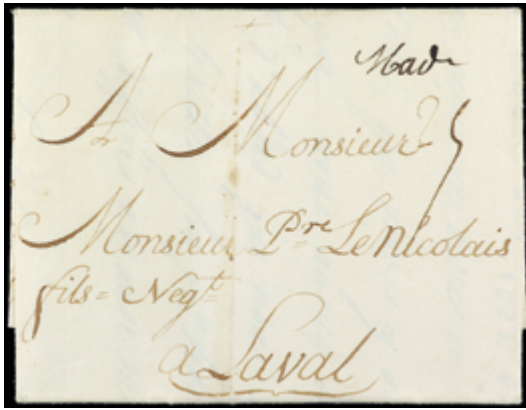 Mad
A Monsieur
Monsieur Pre LeNicolais
fils = Negt
a Laval